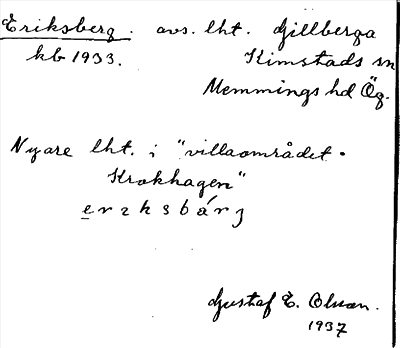 Eriksberg. avs. lht. Gillberga
kb 1933. Kimstads sn
Memmings hd Ög.
Nyare lht. i "villaområdet
Krokhagen"
Gustaf E. Olsson.
1937